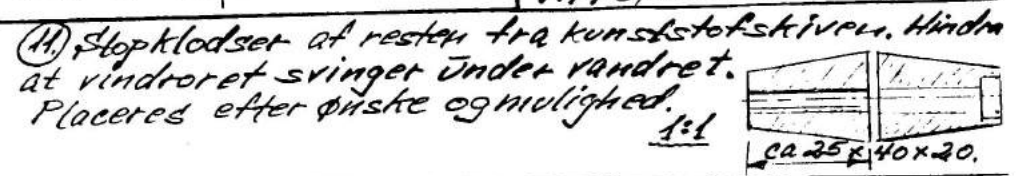 (11.) Stopklodser af resten fra kunststofskiven. Hindre
at vindroret svinger under vandret.
Placeres efter ønske og mulighed.
1:1
ca 25 x 40 x 20.